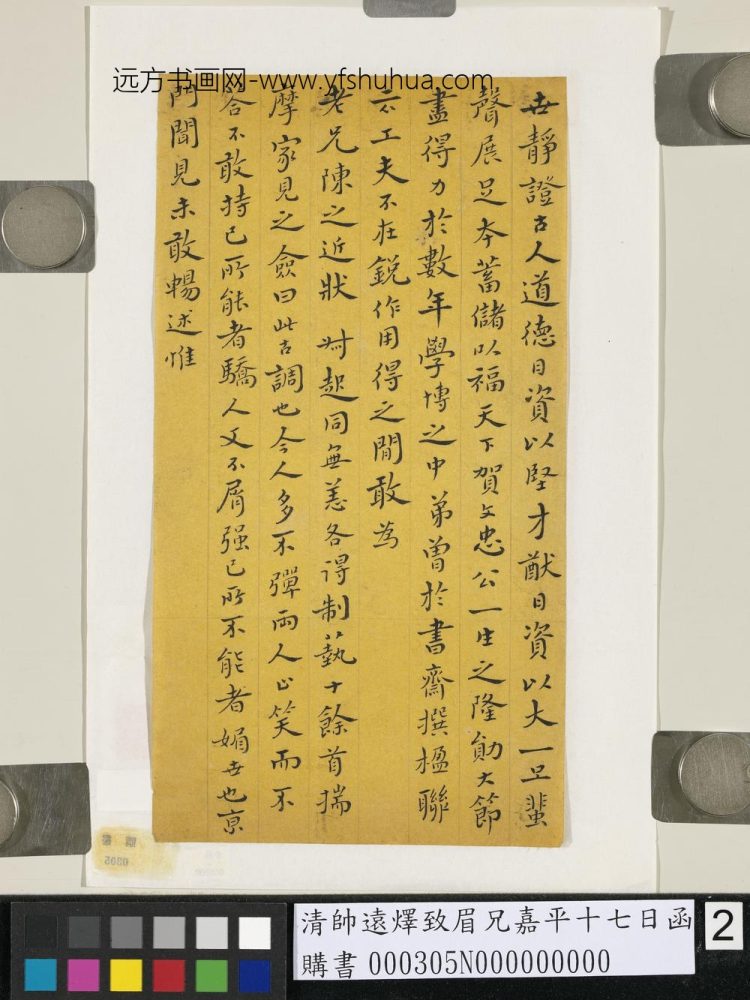 远方书画网-www.yfshuhua.com
世靜證古人道德日資以堅才猷日資以大一旦蜚
聲展足本蓄儲以福天下賀文忠公一生之隆勛大節
盡得力於數年學博之中弟曾於書齋撰楹聯
云工夫不在銳作用得之閒敢為
老兄陳之近狀 對起同無恙各得制藝十餘首揣
摩家見之僉曰此古調也今人多不彈兩人亦笑而不
答不敢持已所能者驕人又不屑强已所不能者媚世也京
門聞見未敢暢述惟
購書
0305
清帥遠燡致眉兄嘉平十七日函
購書 000305N000000000
2